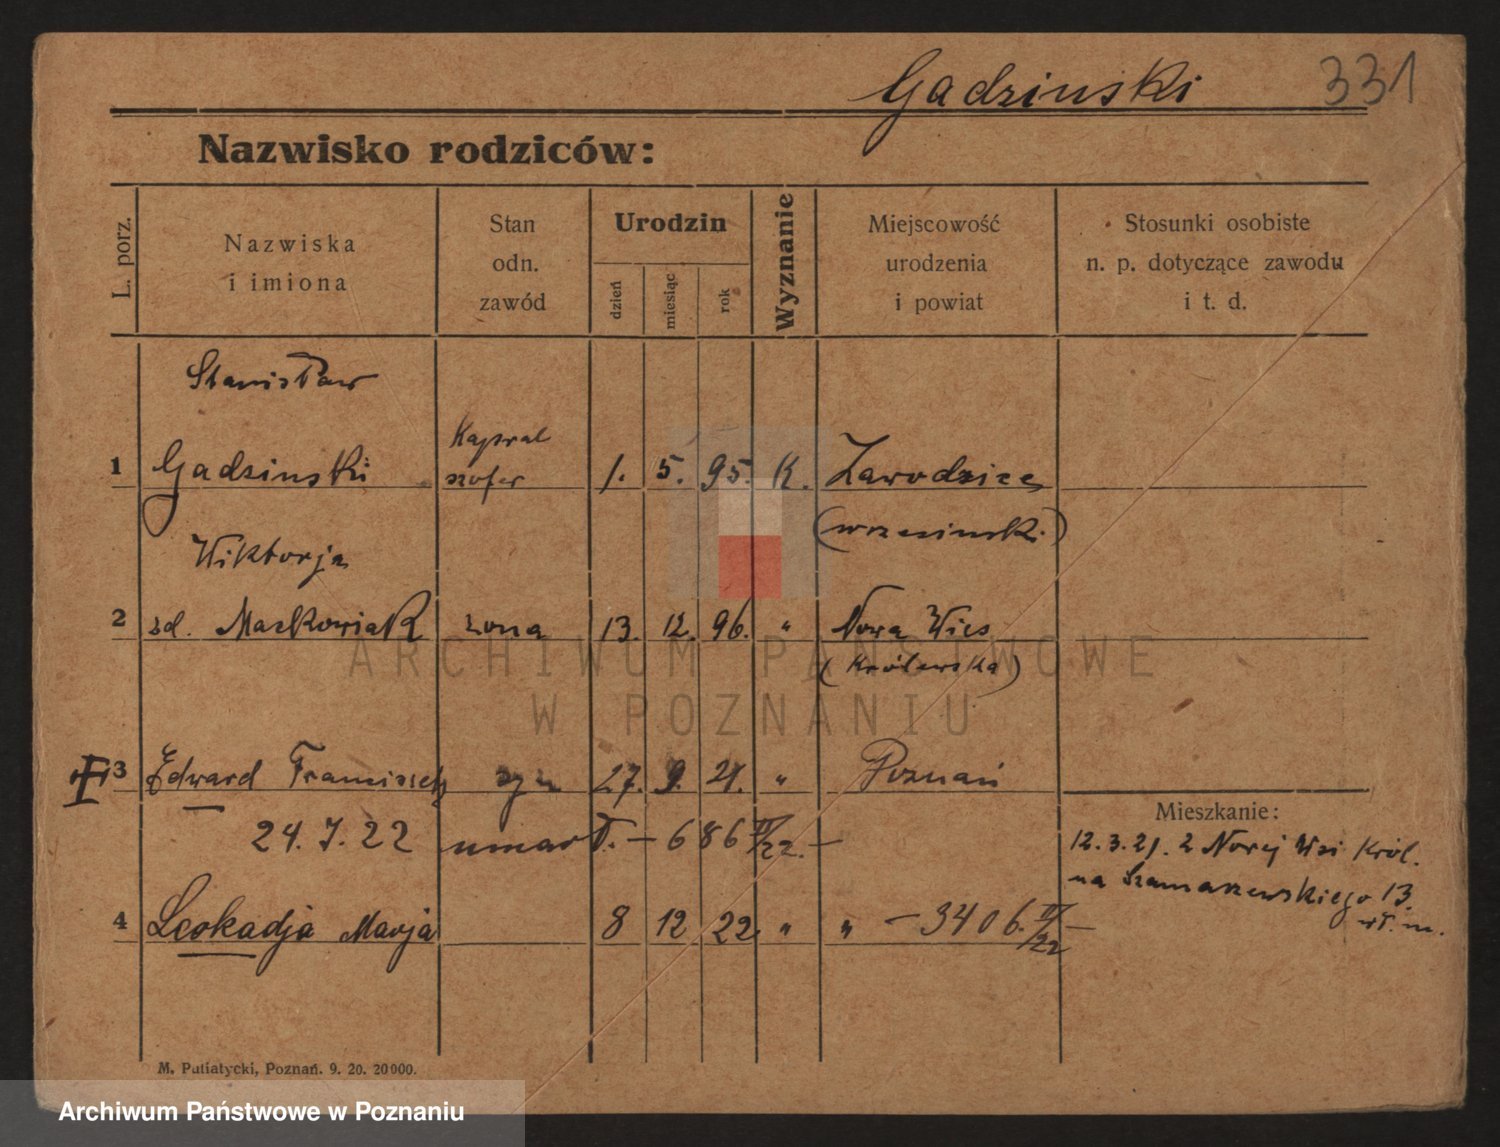 Gadzinski 331
Nazwisko rodziców:
L. porz.
Nazwiska
i imiona
Stan
odn.
zawód
Urodzin
dzień
miesiąc
rok
Wyznanie
Miejscowość
urodzenia
i powiat
Stosunki osobiste
n. p. dotyczące zawodu
i t. d.
Stanisław
Kapral
1 Gadzinski szofer 1. 5. 95. K. Zawodzice
(wrzesinski)
Wiktorja
2 zd. Maćkowiak zona 13. 12. 96. " Nowa Wies
(Królewska)
3 Edward Franciszek syn 27. 9. 21. " Poznań
Mieszkanie:
24. 7. 22 umarł. — 686 III/22. —
12.3.21. z Nowej Wsi Król.
na Szamarzewskiego 13.
wł. m.
4 Leokadja Marja 8 12 22. " " — 3406. IV/22 —
M. Putiatycki, Poznań. 9. 20. 20000.
ARCHIWUM PAŃSTWOWE
W POZNANIU
Archiwum Państwowe w Poznaniu